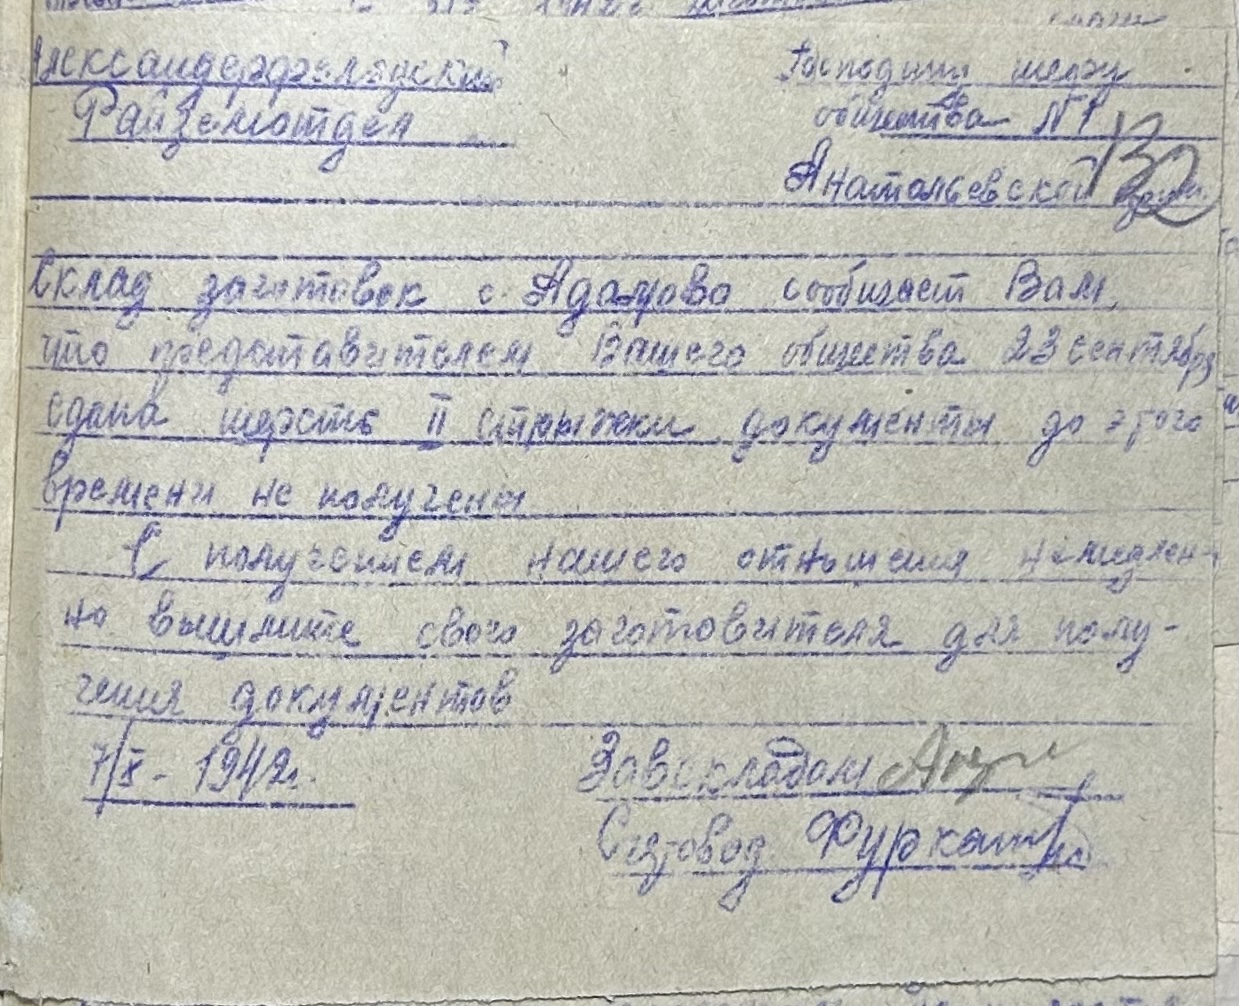 Александерфельдский
Райземотдел
Господину шефу
общества №1
Анатольевской
132
Склад заготовок с. Адамово сообщает Вам,
что представителем Вашего общества 23 сентября
сдана шерсть II стрижки документы до этого
времени не получены
С получением нашего отношения немедлен-
но вышлите своего заготовителя для полу-
чения документов
7/X - 1942г.
Завскладом
Счетовод Фуркат